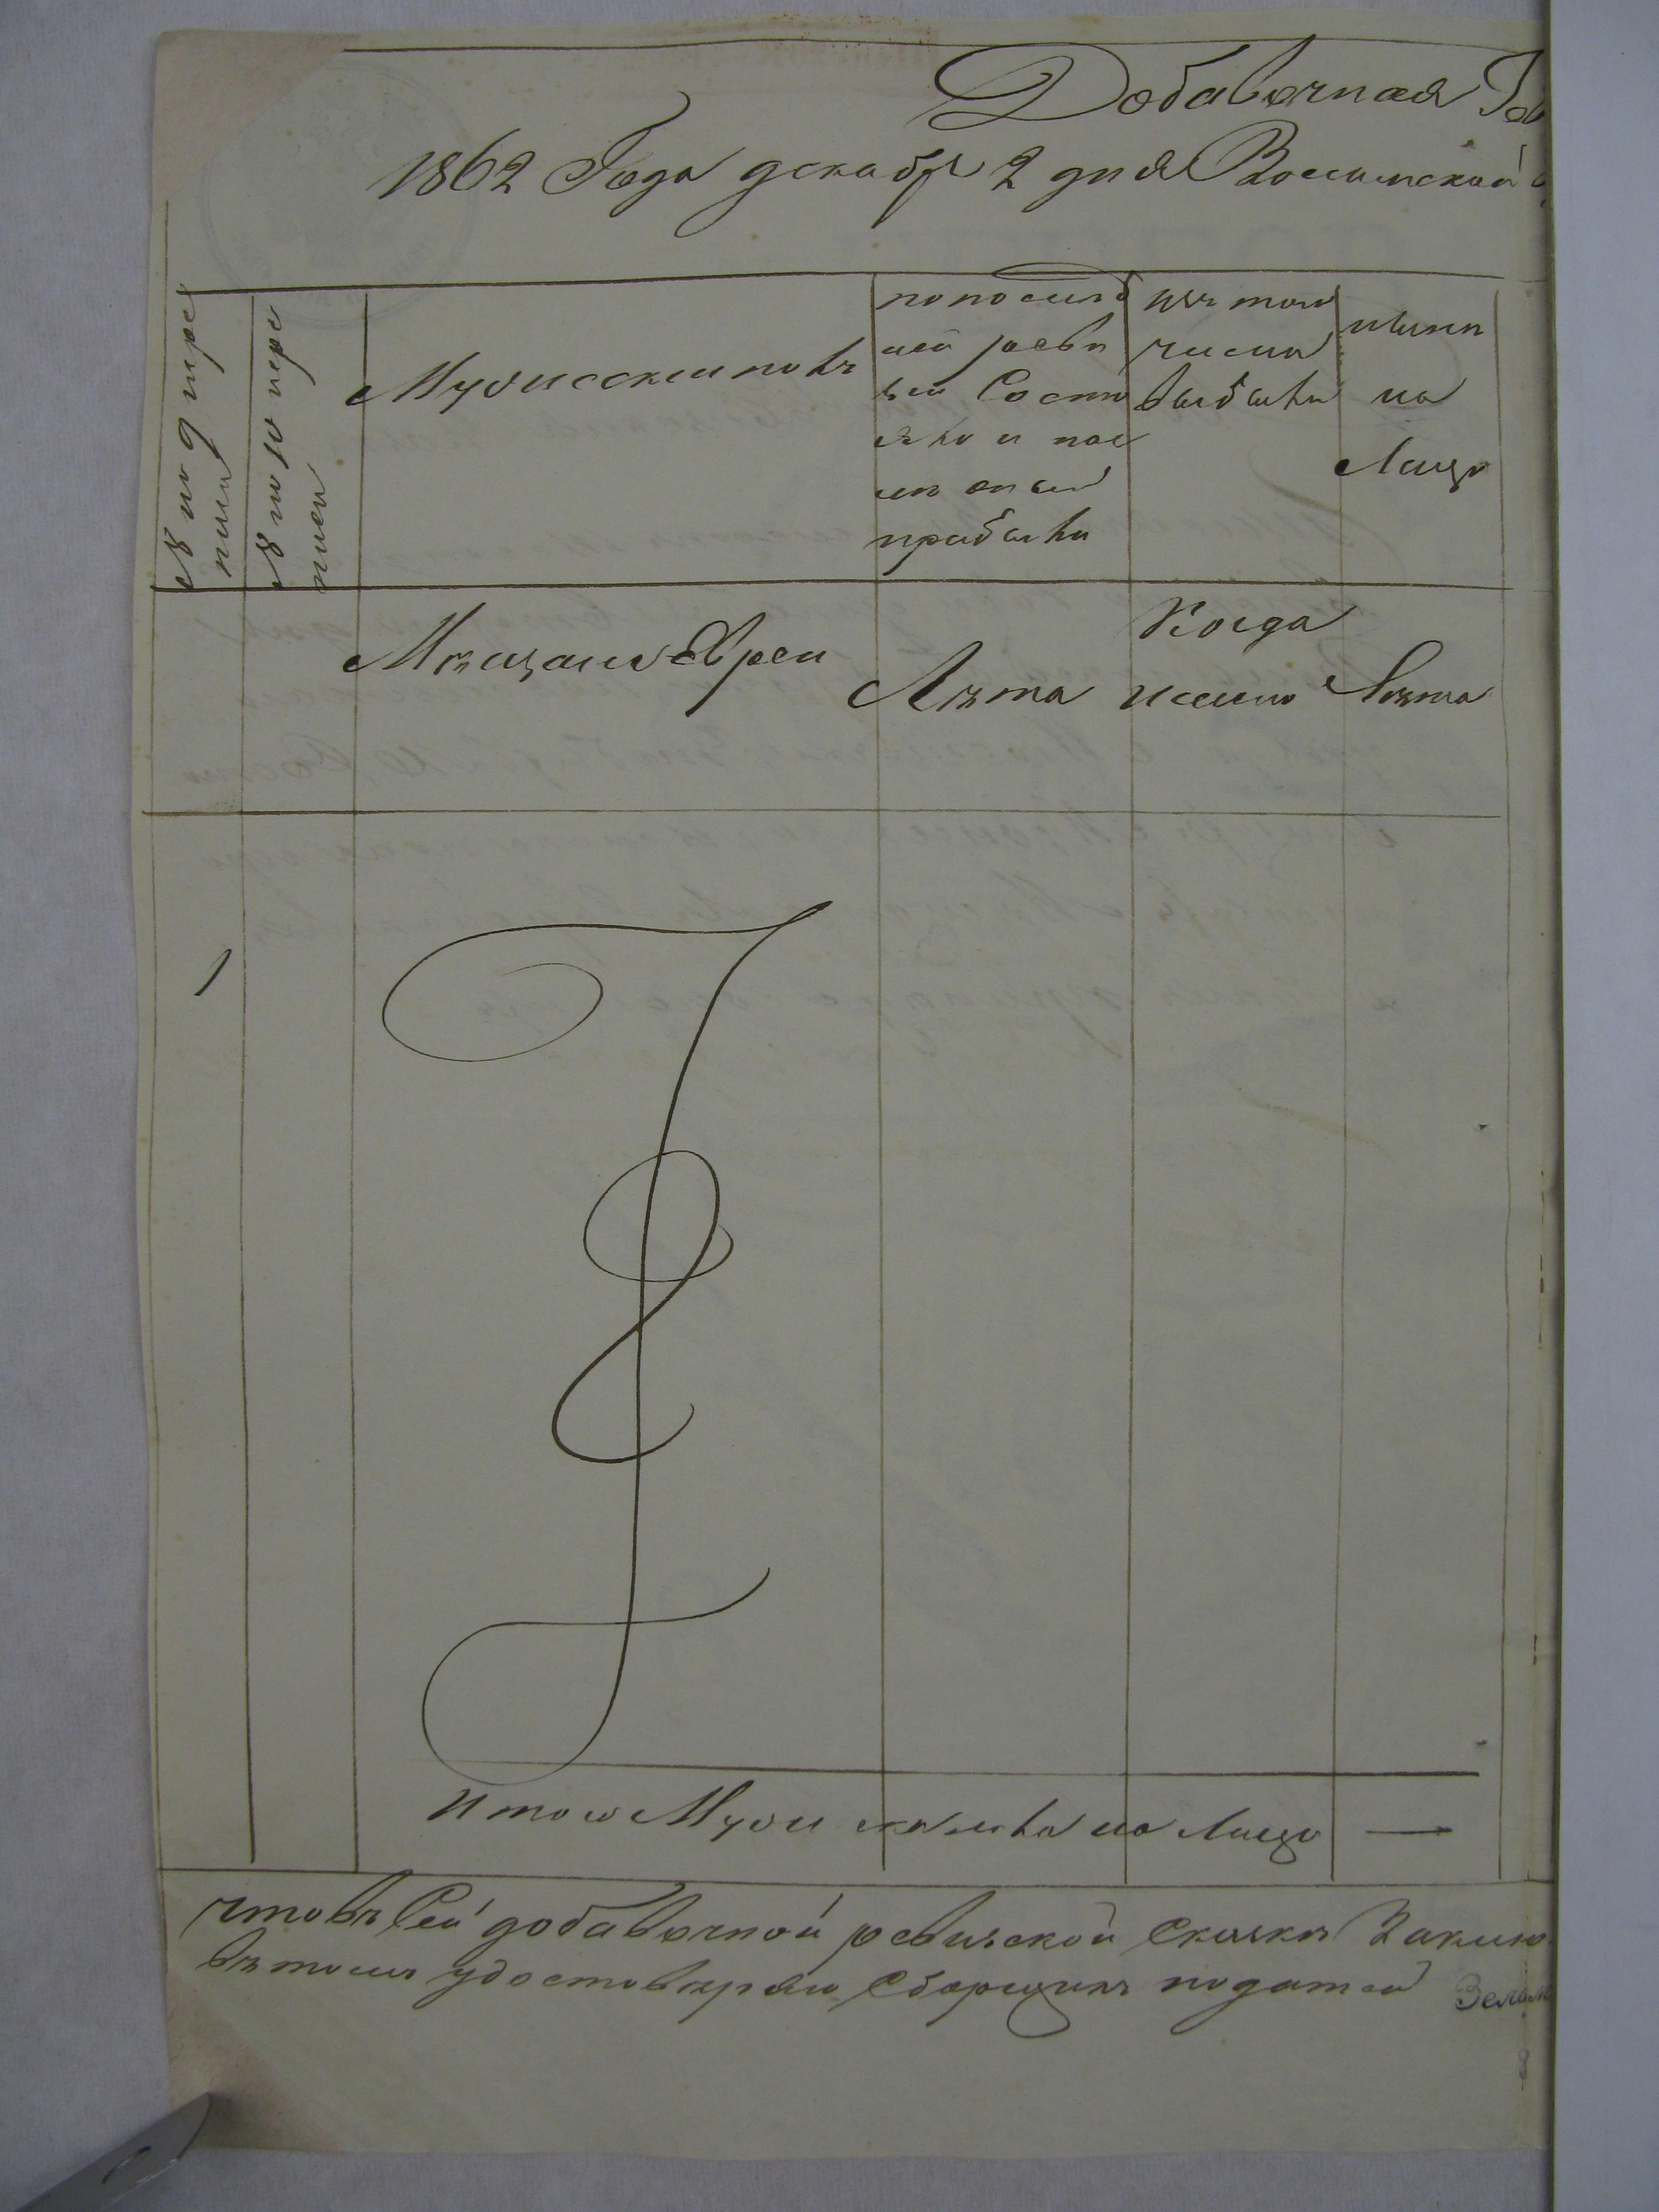 Добавочная Рев
1862 Года декабр 2 дня Россиенской
№ по 9 пере
писи
№ по 10 пере
писи
Мужескаго полъ
по послѣд
ней реви
зіи Состо
яло и пос
ле оной
прибыли
изъ того
числа
выбыли
нынѣ
на
лицо
Мѣщане Евреи
Лѣта
Когда
имено
Лѣта
1
Итого Мужескаго пола на лицо —
что въ Сей добавочной ревизской Сказкѣ Заклю
въ томъ удостовѣряю Сборщикъ податей Зельм